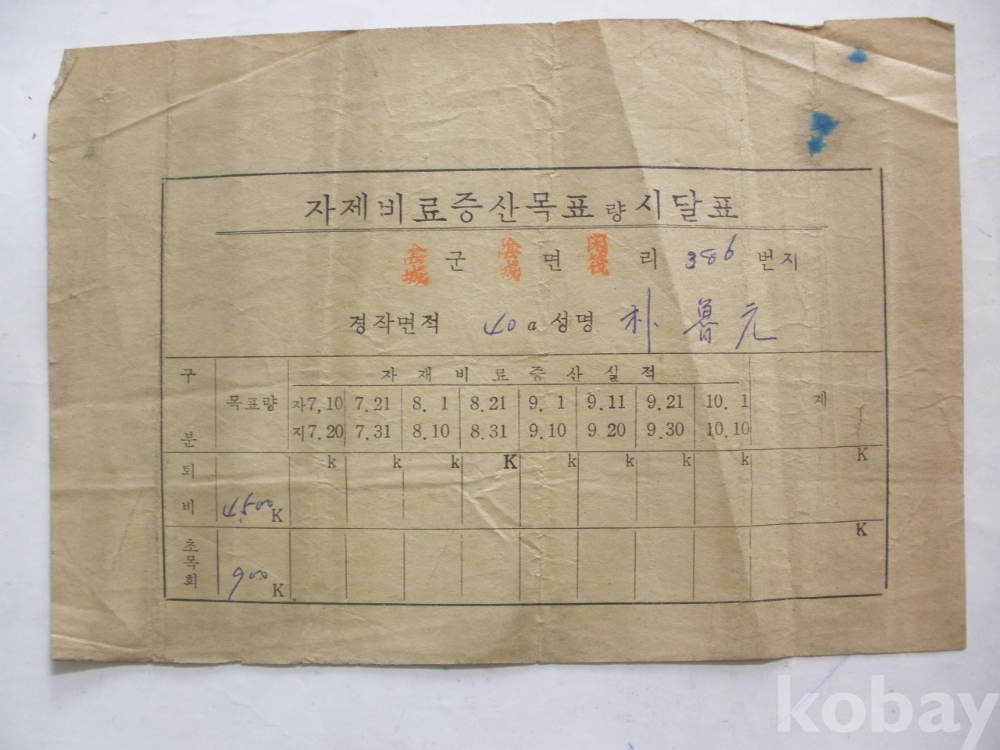 자제비료증산목표량시달표
金城 군 金城 면 閑筏 리 386 번지
경작면적 40 a 성명 朴魯元
구분 목표량 자재비료증산실적 계
자7.10 7.21 8. 1 8.21 9. 1 9.11 9.21 10. 1
지7.20 7.31 8.10 8.31 9.10 9.20 9.30 10.10
퇴비 4,500 K k k k K k k k k K
초목회 900 K K
kobay